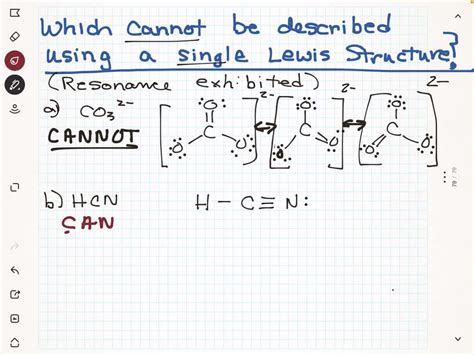 Which cannot be described
using a single Lewis Structure?
(Resonance exhibited)
a) CO₃²⁻
CANNOT
[:O: = C - O: O:]²⁻ ↔ [:O: - C = O: O:]²⁻ ↔ [:O: - C - O: O:]²⁻
b) HCN
H - C ≡ N:
CAN